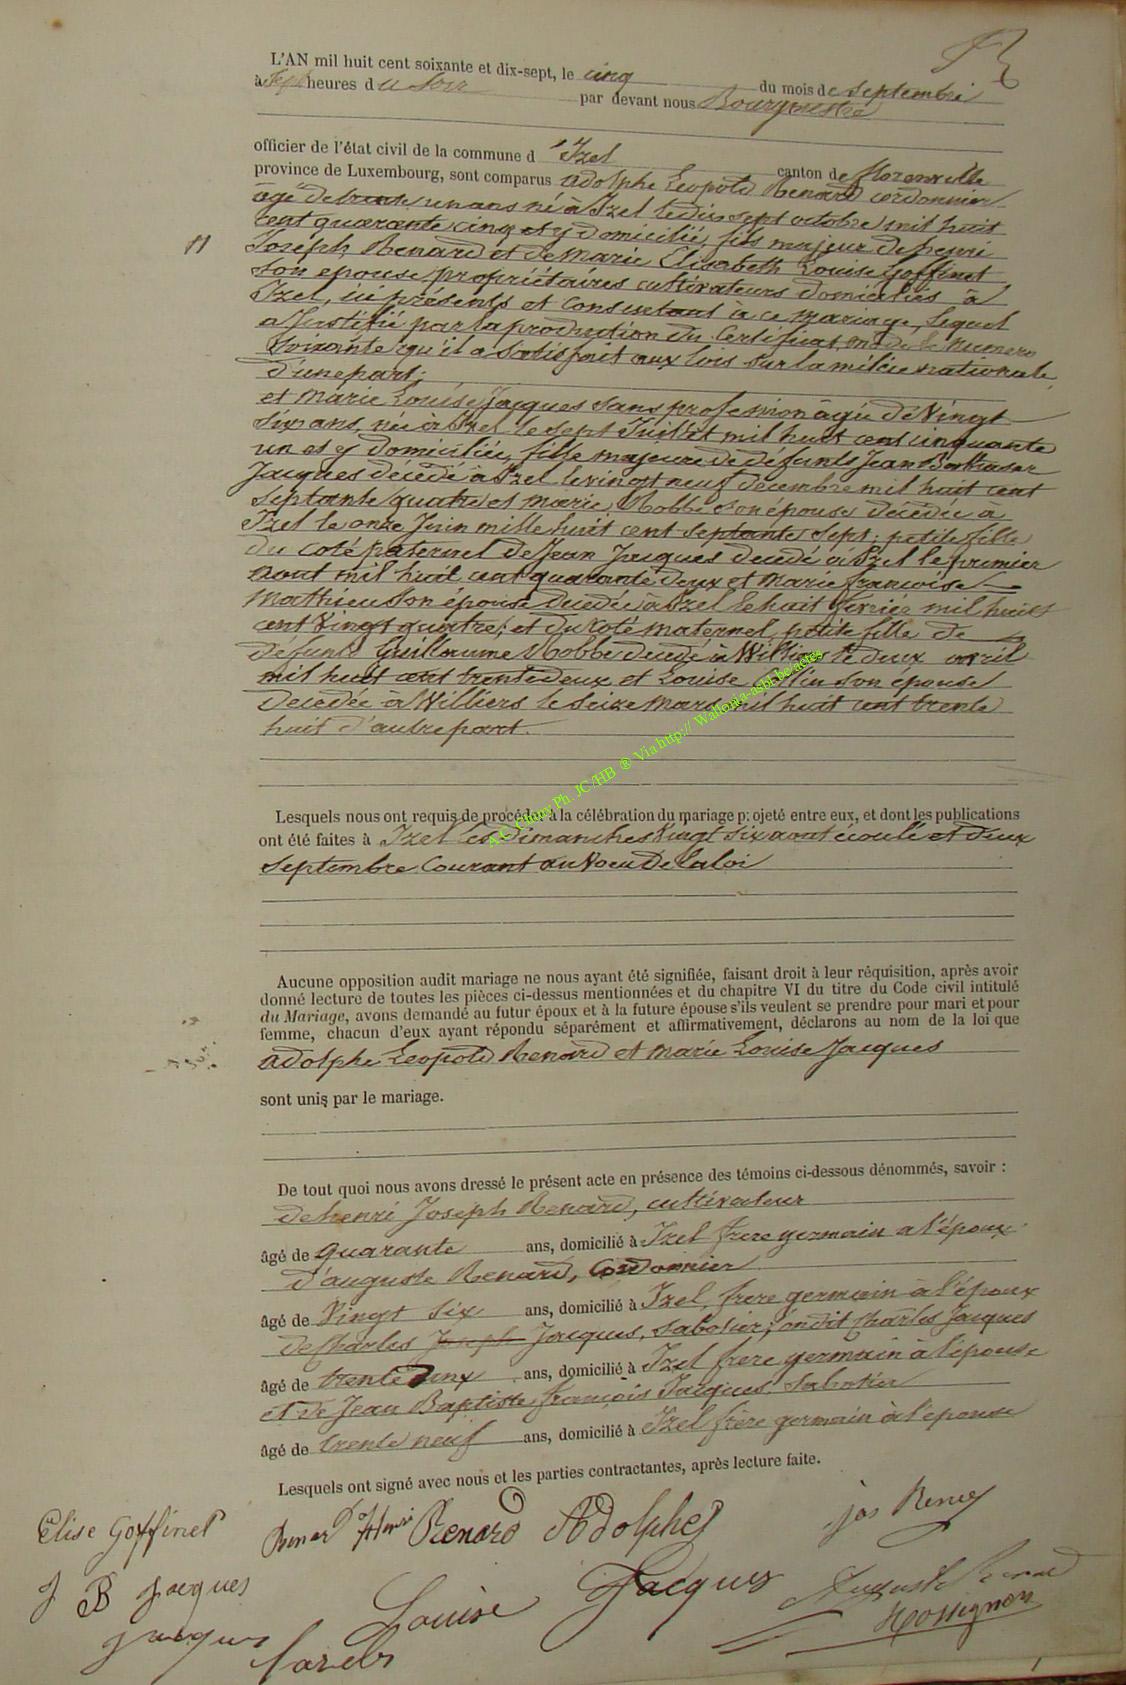 L'AN mil huit cent soixante et dix-sept, le cinq du mois de septembre
à sept heures du soir par devant nous Bourgmestre
officier de l'état civil de la commune d'Izel canton de florenville
province de Luxembourg, sont comparus adolphe Leopold Renard cordonnier
âgé de trente un ans né à Izel le dix sept octobre mil huit
cent quarante cinq et y domicilié, fils majeur de henri
11 Joseph Renard et de Marie Elisabeth Louise Goffinet
son epouse propriétaires cultivateurs domiciliés à
Izel, ici présents et consentant à ce mariage, lequel
a justifié par la production du certificat, numero
soixante qu'il a satisfait aux lois sur la milice nationale
d'une part;
et Marie Louise Jacques sans profession âgée de Vingt
six ans, née à Izel le sept Juillet mil huit cent cinquante
un et y domiciliée, fille majeure de défunts Jean Baltasar
Jacques décédé à Izel le vingt neuf décembre mil huit cent
septante quatre et marie Robbe son épouse décédée à
Izel le onze Juin mille huit cent septante sept; petite fille
du coté paternel de Jean Jacques decedé à Izel le premier
aout mil huit cent quarante deux et Marie francoise
Mathieu son épouse decedée à Izel le huit mil huit
cent Vingt quatre; et du coté maternel, petite fille de
defunts Guillaume Robbe decedé à Williers le deux avril
mil huit cent trente deux et Louise son épouse
decedée à Williers le seize Mars mil huit cent trente
huit d'autre part.
A.C. Chiny Ph. JC/HB ® Via http:// Wallonia-asbl.be/actes
Lesquels nous ont requis de procéder à la célébration du mariage projeté entre eux, et dont les publications
ont été faites à Izel les Dimanches Vingt six aout écoulé et deux
septembre Courant au Voeu de la loi
Aucune opposition audit mariage ne nous ayant été signifiée, faisant droit à leur réquisition, après avoir
donné lecture de toutes les pièces ci-dessus mentionnées et du chapitre VI du titre du Code civil intitulé
du Mariage, avons demandé au futur époux et à la future épouse s'ils veulent se prendre pour mari et pour
femme, chacun d'eux ayant répondu séparément et affirmativement, déclarons au nom de la loi que
adolphe Leopold Renard et Marie Louise Jacques
sont unis par le mariage.
De tout quoi nous avons dressé le présent acte en présence des témoins ci-dessous dénommés, savoir :
de henri Joseph Renard, cultivateur
âgé de quarante ans, domicilié à Izel frere germain a l'époux
d'auguste Renard, Cordonnier
âgé de Vingt six ans, domicilié à Izel, frere germain à l'époux
de Charles Joseph Jacques, sabotier; on dit Charles Jacques
âgé de trente deux ans, domicilié à Izel frere germain à l'épouse
et de Jean Baptiste françois Jacques. Sabotier
âgé de trente neuf ans, domicilié à Izel frère germain à l'épouse
Lesquels ont signé avec nous et les parties contractantes, après lecture faite.
Elise Goffinet Renard Henri Renard Adolphe jos Renard
J B Jacques Louise Jacques Auguste Renard
Jacques Rossignon